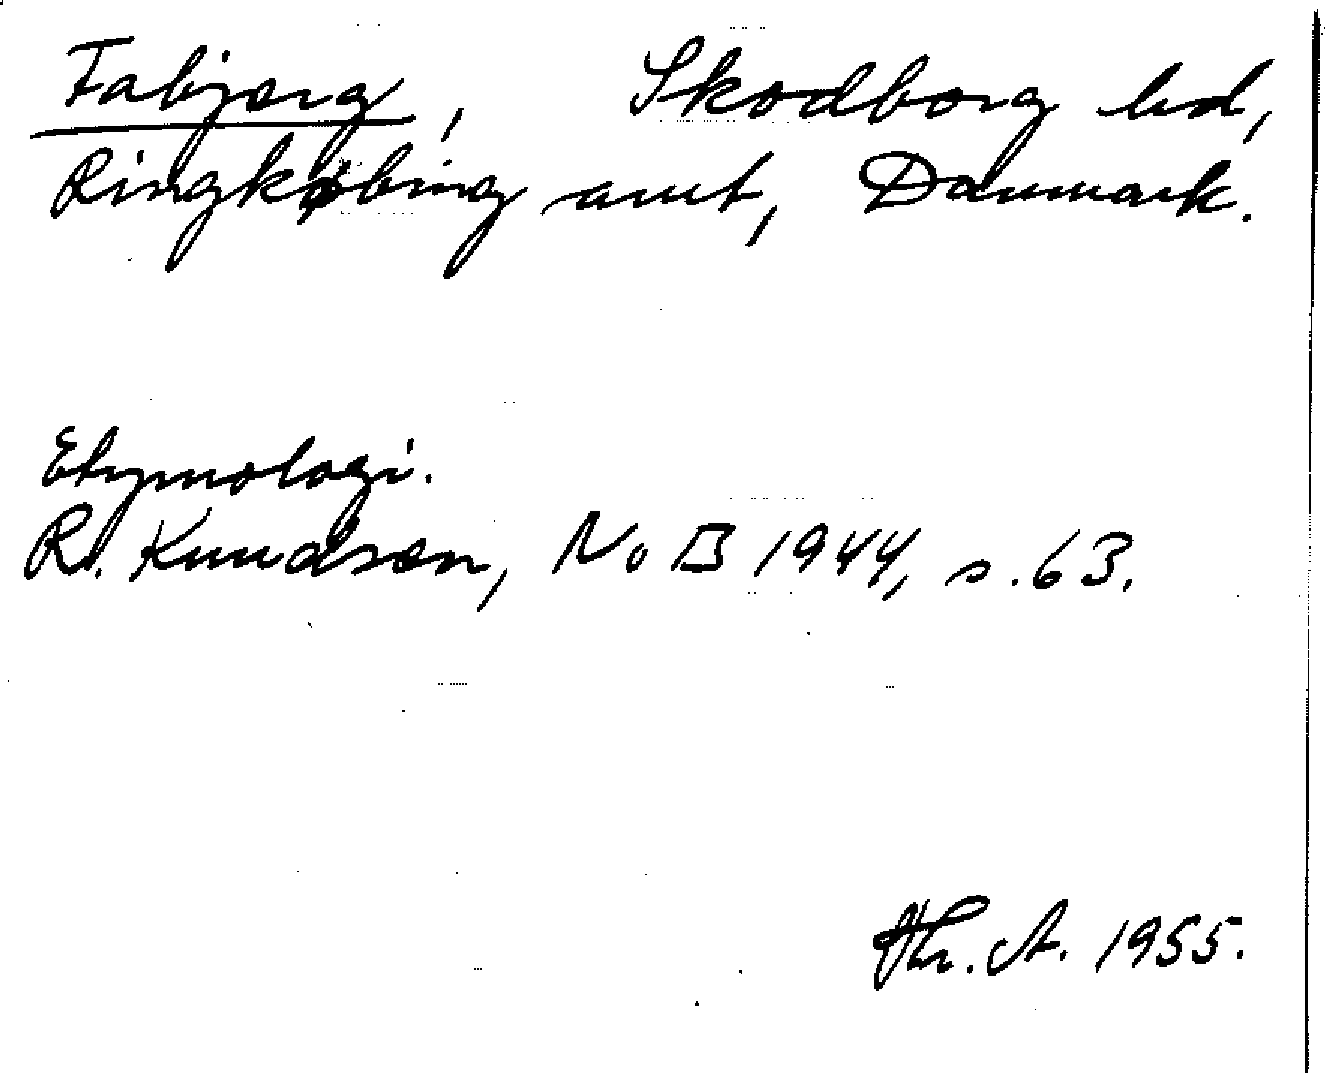 Fabjerg, Skodborg hd,
Ringkøbing amt, Danmark.
Etymologi.
R. Knudsen, NoB 1944, s. 63.
Th. A. 1955.